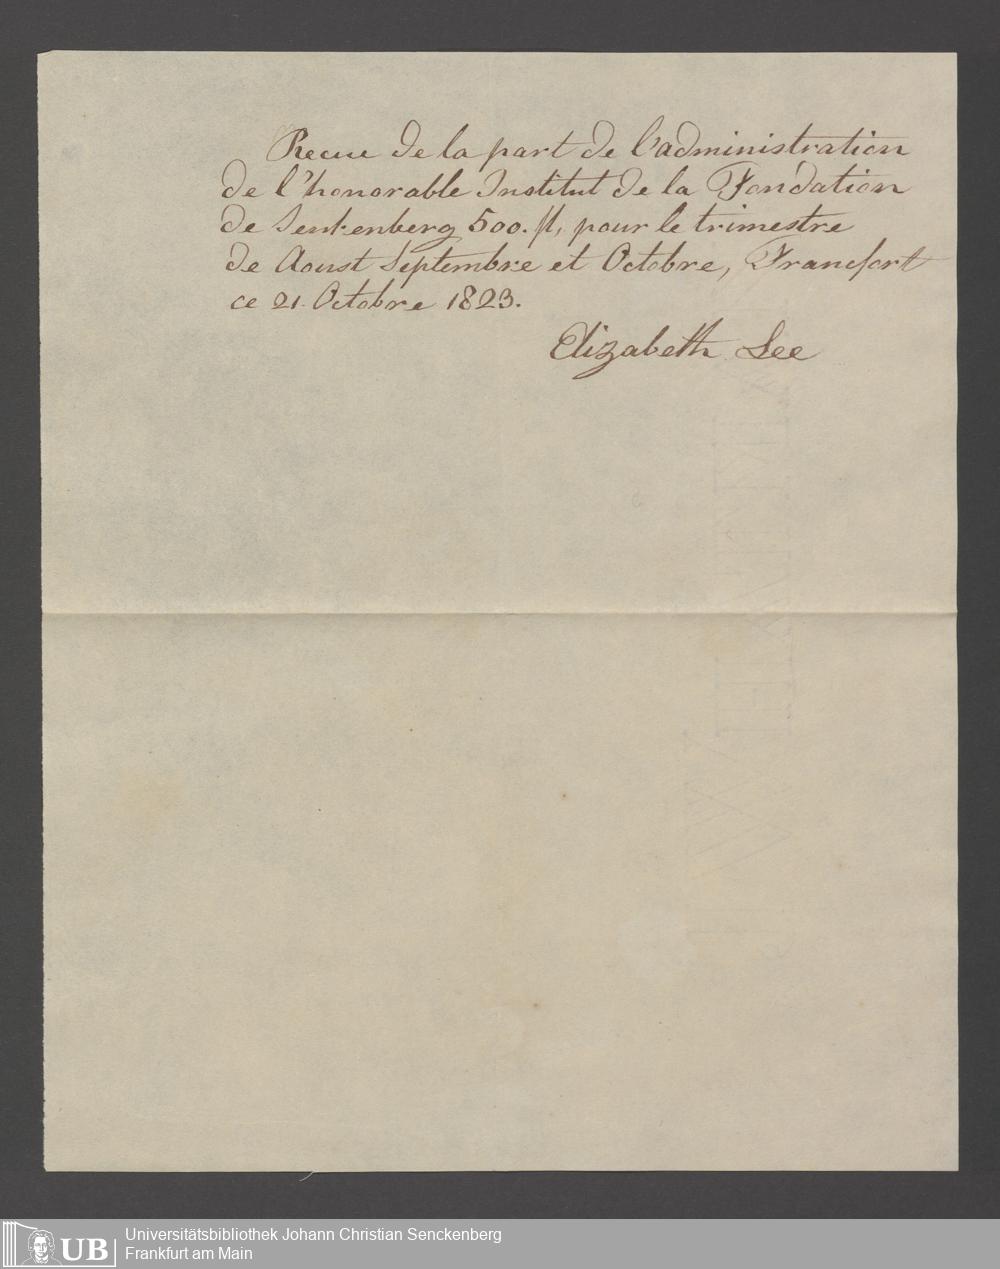 Recue de la part de l'administration
de l'honorable Institut de la Fondation
de Senkenberg 500. fl, pour le trimestre
de Aoust Septembre et Octobre, Francfort
ce 21. Octobre 1823.
Elizabeth Lee
UB
Universitätsbibliothek Johann Christian Senckenberg
Frankfurt am Main